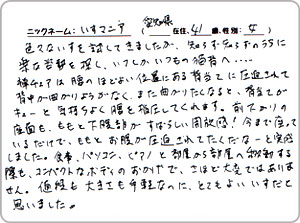 ニックネーム：いすマニア （愛知県 在住、41歳、性別：女）
色々ないすを試してきましたが、知らず知らずのうちに
楽な姿勢を探し、いつしかいつもの猫背へ・・・・
椅子は腰のほどよい位置にある背当てに圧迫されて
背中が曲がりようがなく、また曲がりたくなると、背当てが
キューと気持ちよく腰を指圧してくれます。前下がりの
座面も、ももと下腹部がすばらしい開放感！今まで座って
いるだけで、ももとお腹が圧迫されてたんだなーと実感
しました。食事、パソコン、ピアノと部屋から部屋へ移動する
際も、コンパクトなボディのおかげで、さほど大変ではありま
せん。値段も大きさも手軽なのに、とてもよいいすだと
思いました。